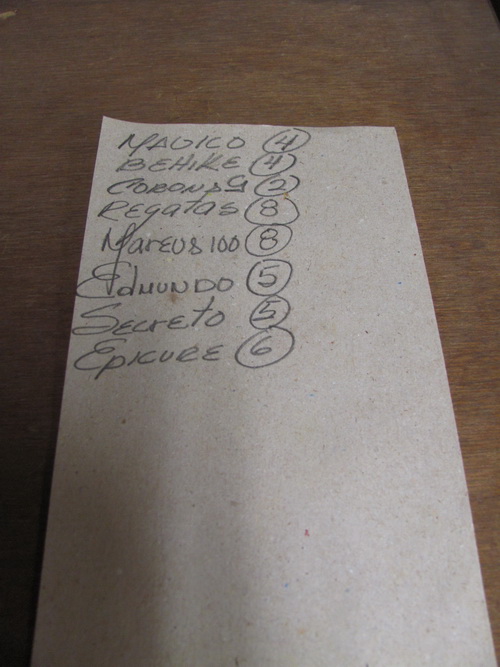 MAGICO 4
BEHIKE 4
CORONAS 2
REGATAS 8
Mareus 100 8
EDMUNDO 5
SecreTo 5
EPICURE 6